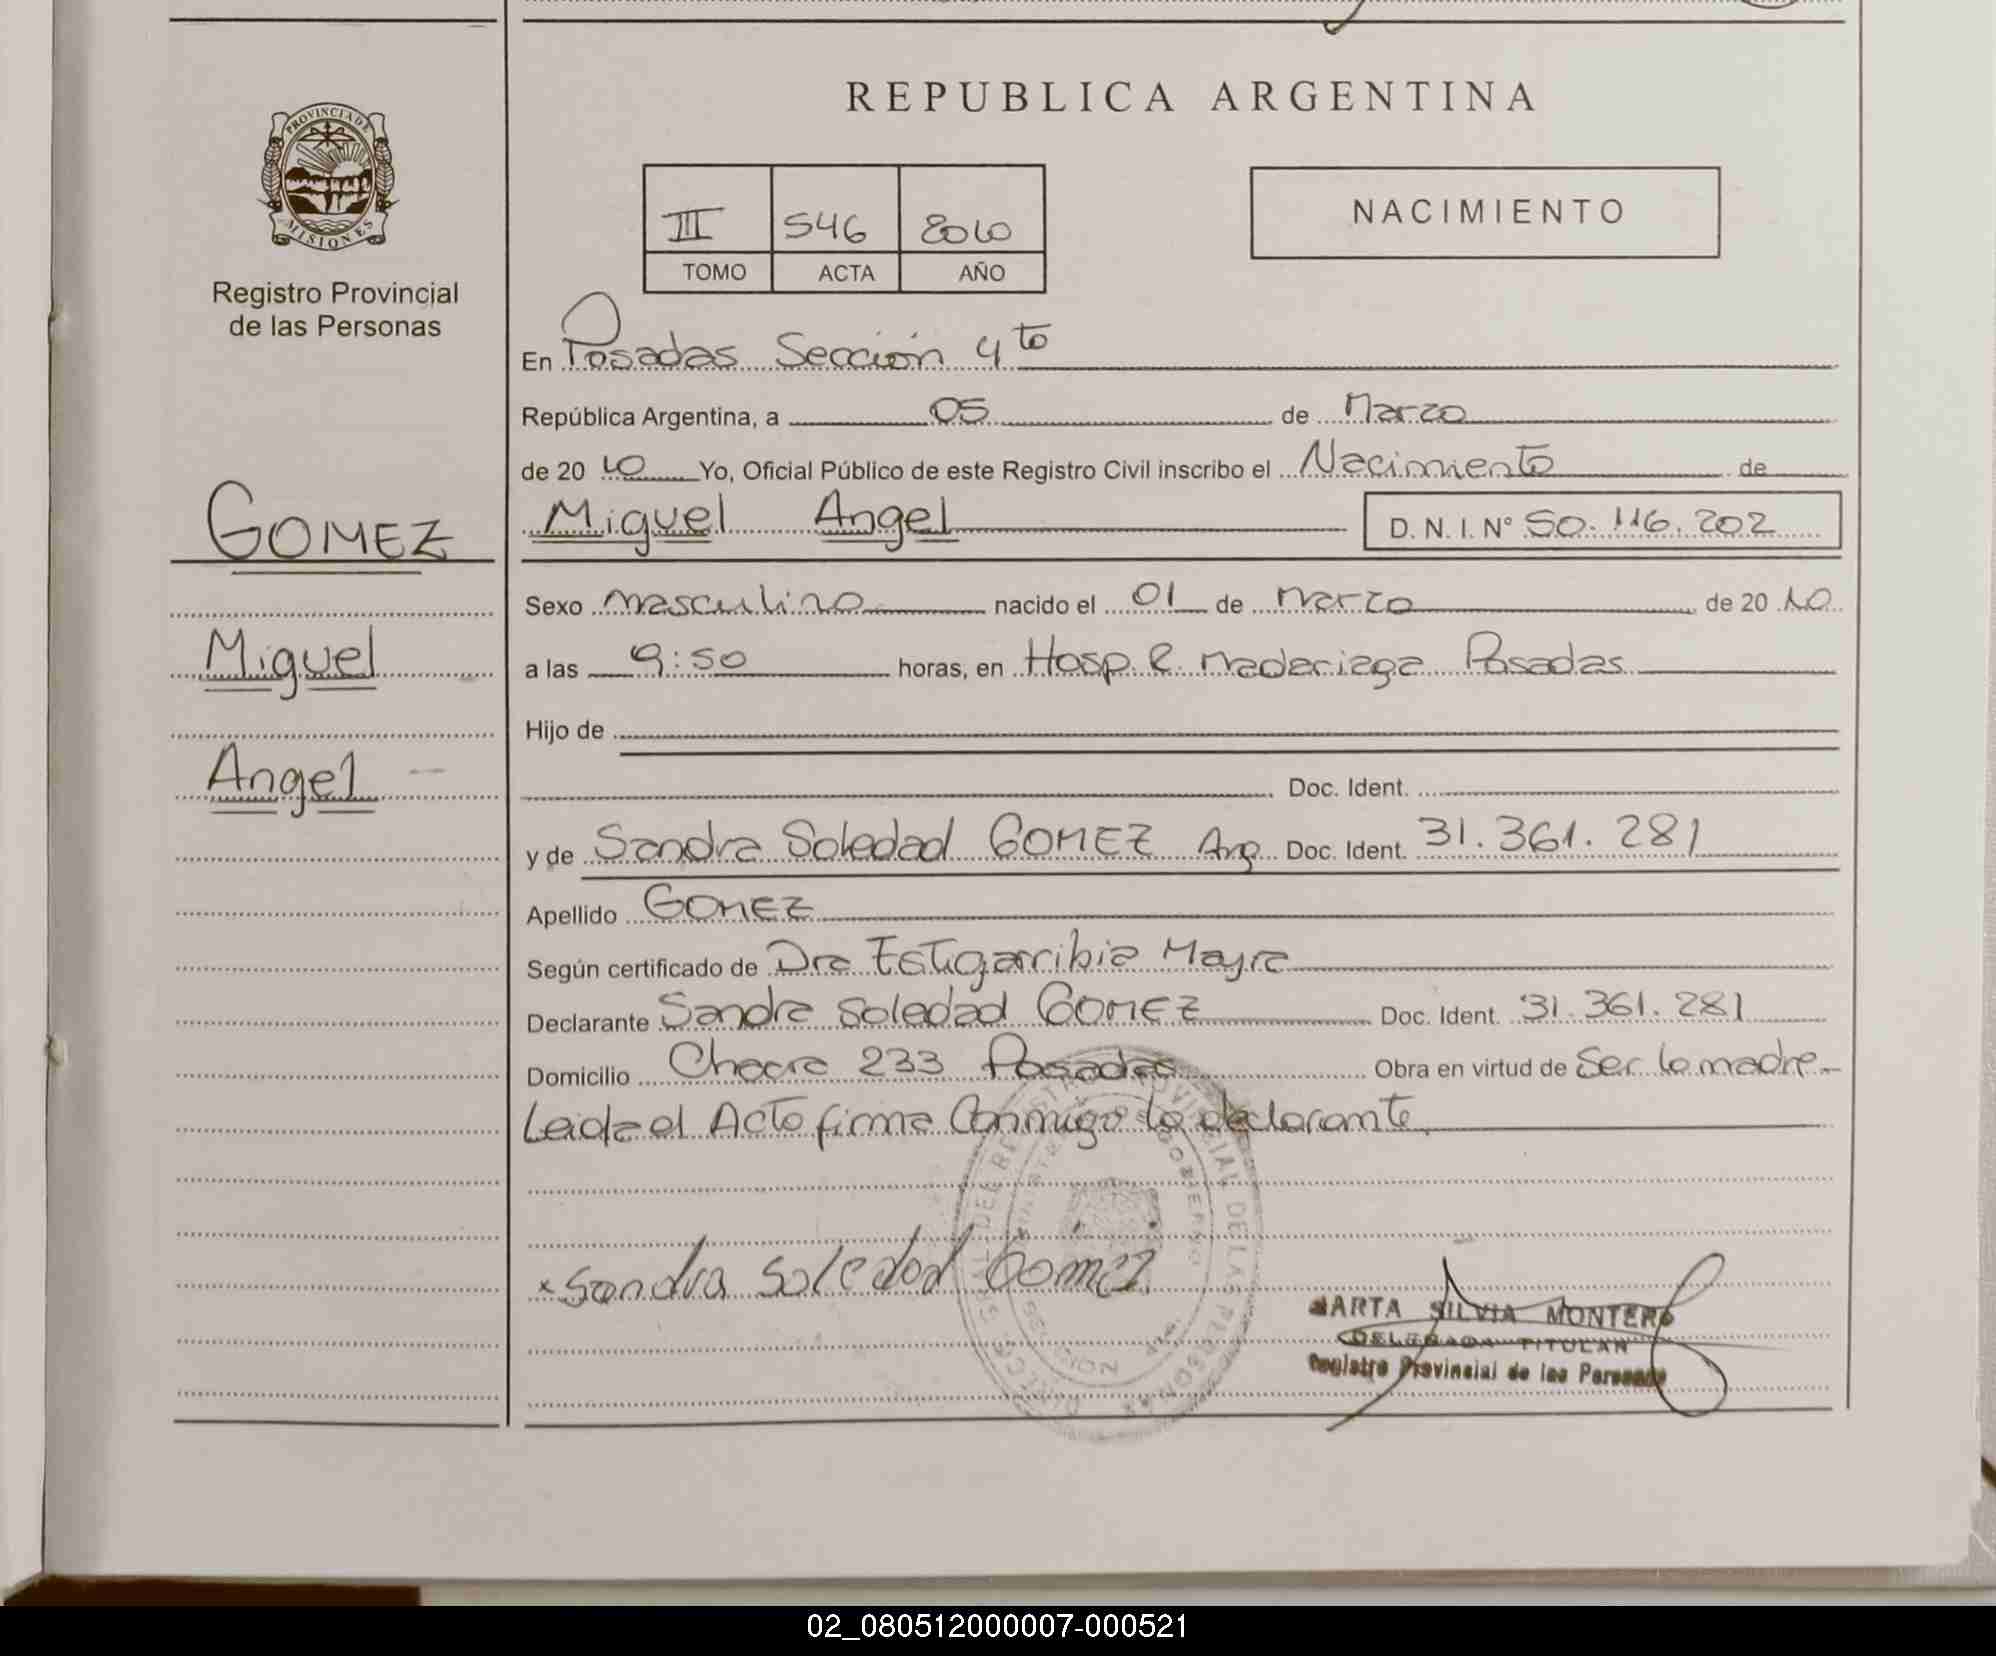 REPUBLICA ARGENTINA
PROVINCIA DE
MISIONES
Registro Provincial
de las Personas
III 546 2010
TOMO ACTA AÑO
NACIMIENTO
En Posadas Sección 4to
República Argentina, a 05 de Marzo
de 20 10 Yo, Oficial Público de este Registro Civil inscribo el Nacimiento de
GOMEZ
Miguel Angel D. N. I. N° 50.116.202
Sexo masculino nacido el 01 de marzo de 20 10
Miguel
a las 9:50 horas, en Hosp. R. Madariaga Posadas
Hijo de
Angel
Doc. Ident.
y de Sandra Soledad GOMEZ Arg Doc. Ident. 31.361.281
Apellido GOMEZ
Según certificado de Dra Estigarribia Mayra
Declarante Sandra Soledad GOMEZ Doc. Ident. 31.361.281
Domicilio Chacra 233 Posadas Obra en virtud de Ser la madre
Leida el Acta firma Conmigo la declarante
x Sandra Soledad Gómez
MARTA SILVIA MONTERO
DELEGADA TITULAR
Registro Provincial de las Personas
02_080512000007-000521